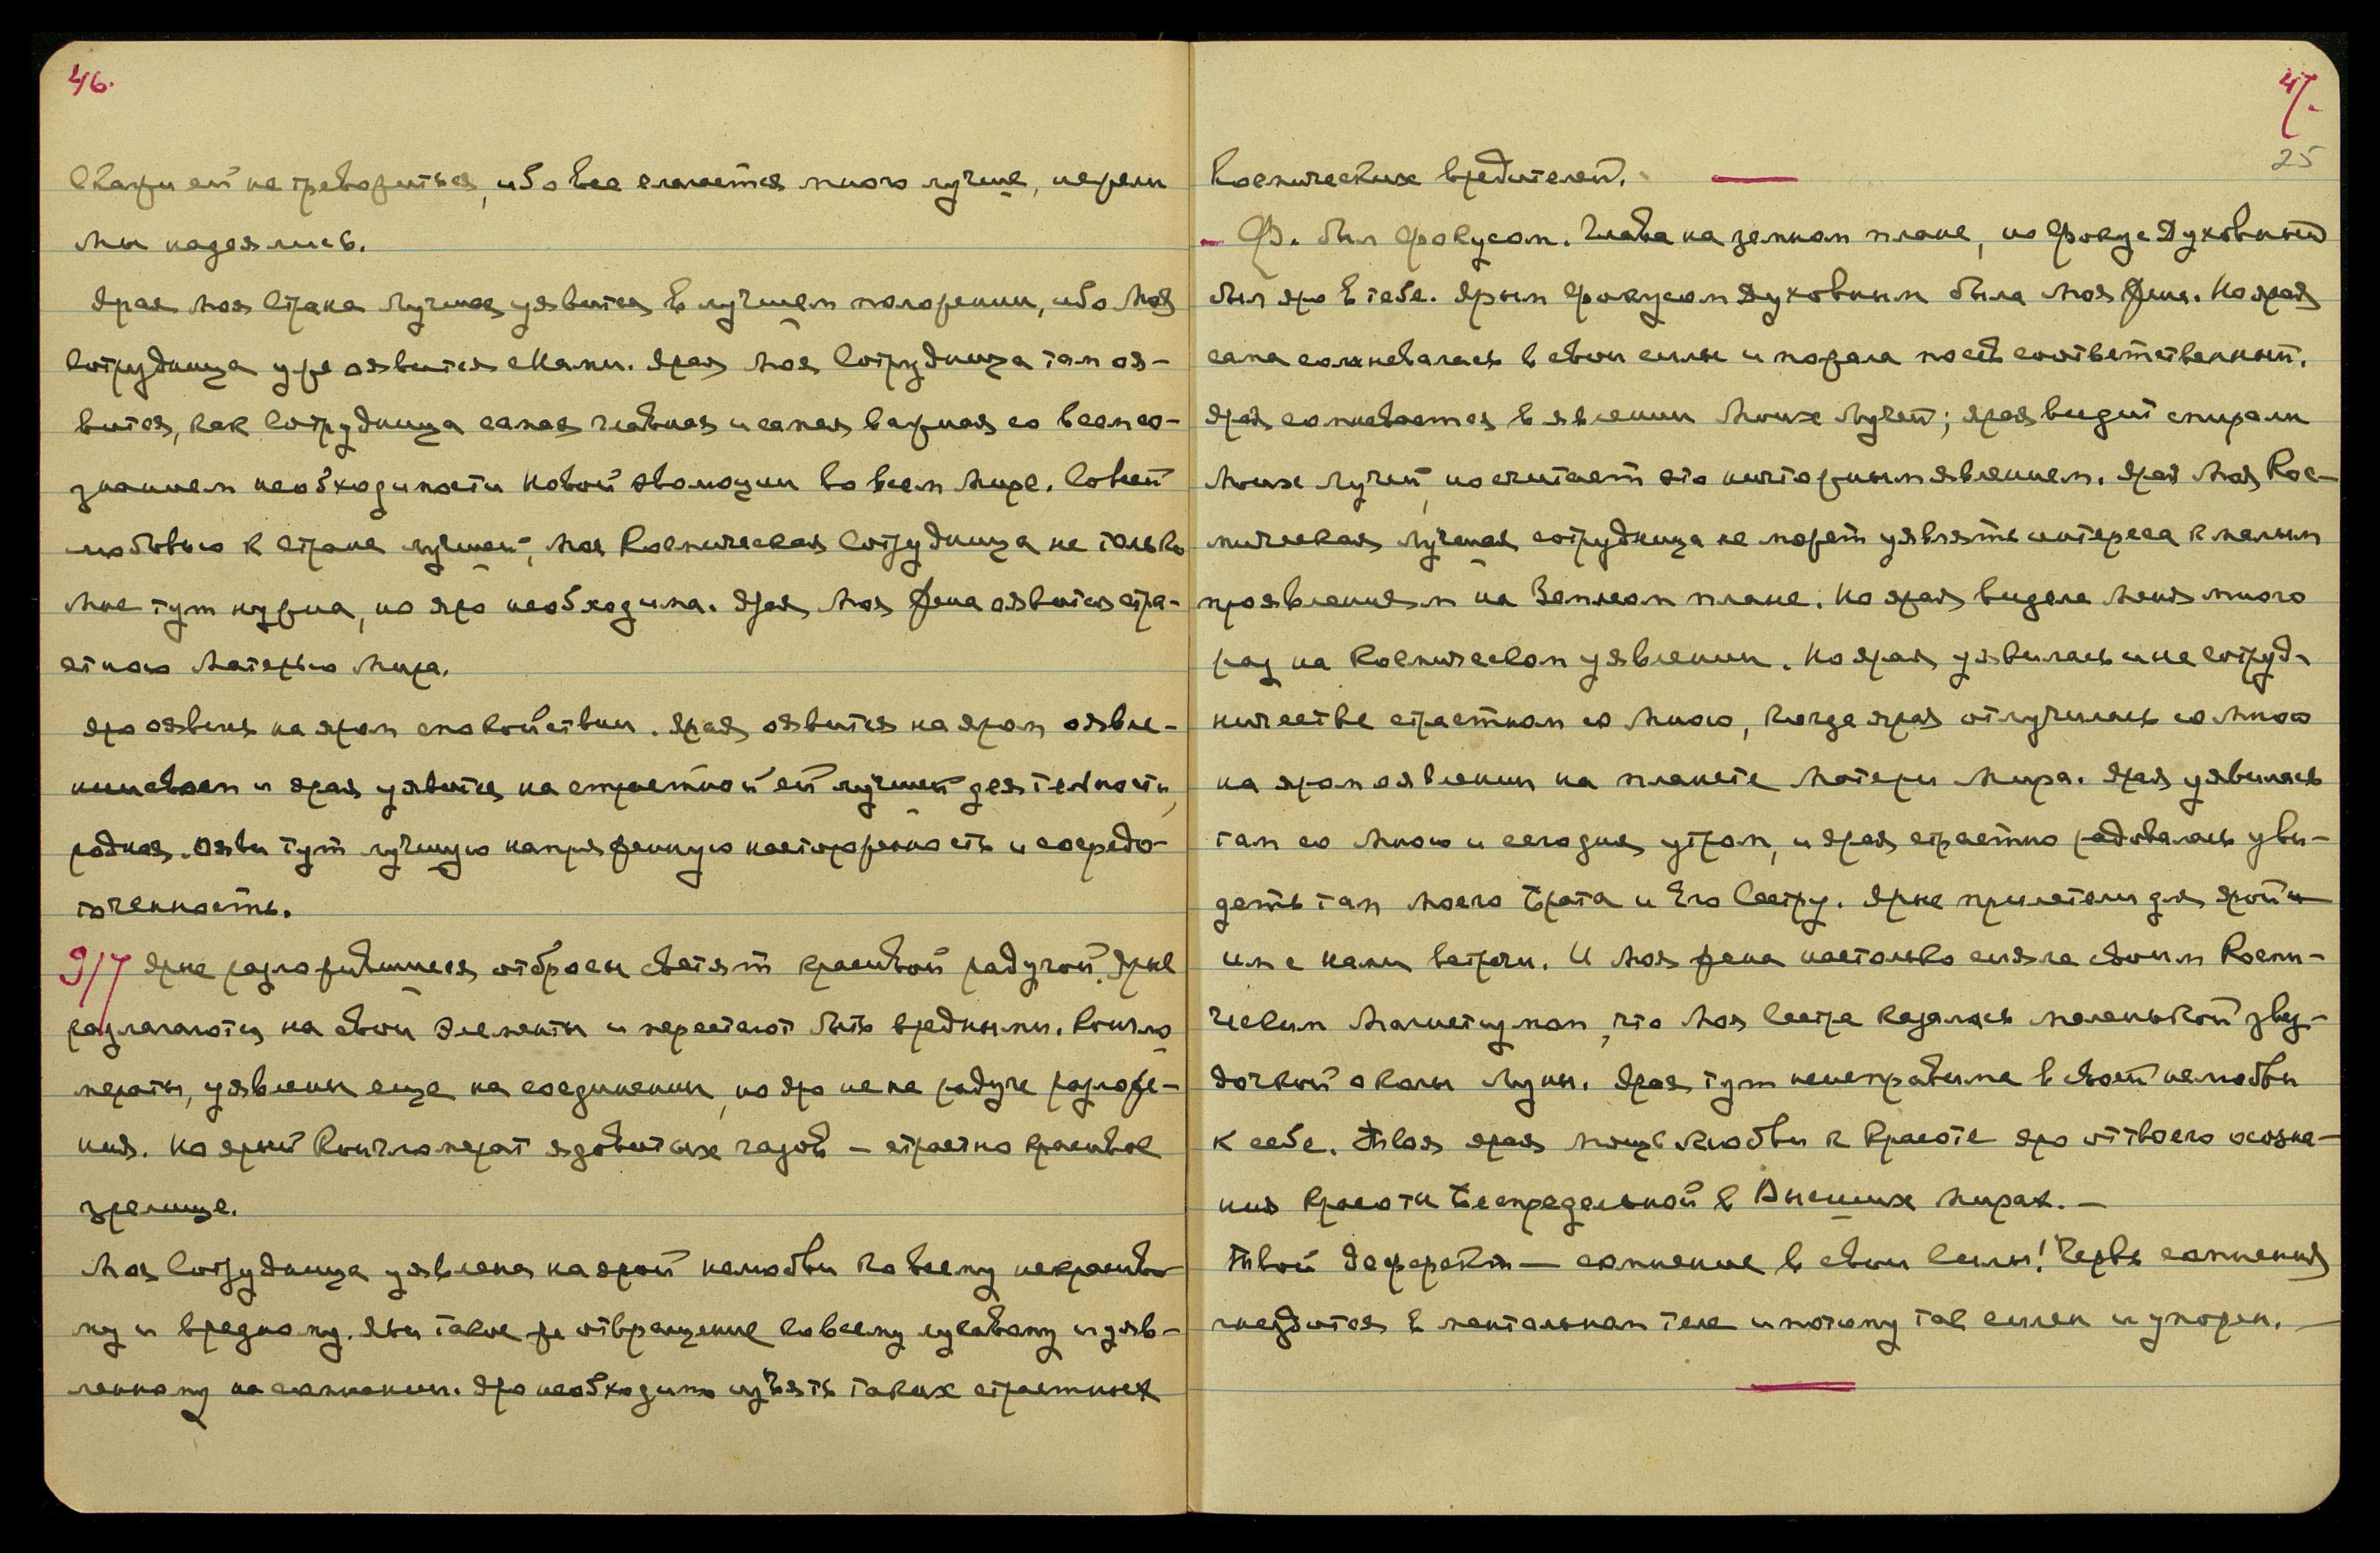 46.
Скажи ей не тревожиться, ибо все слагается много лучше, нежели
мы надеялись.
Ярая моя Страна Лучшая уявится в лучшем положении, ибо Моя
Сотрудница уже оявится с Нами. Ярая Моя Сотрудница там оя-
вится, как Сотрудница самая главная и самая важная со всем со-
знанием необходимости Новой Эволюции во всем Мире. Со всей
любовью к Стране лучшей, Моя Космическая Сотрудница не только
Мне тут нужна, но яро необходима. Ярая Моя Жена оявится стра-
стною Матерью Мира.
Яро оявись на яром спокойствии. Ярая оявится на яром оявле-
нии своем и ярая уявится на страстной ей лучшей деятельности,
родная. Ояви тут лучшую напряженную настороженность и сосредо-
точенность.
9/7 Ярые разложившиеся отбросы светят красивой радугой. Ярые
разлагаются на свои элементы и перестают быть вредными. Конгло
мераты, уявлены еще на соединении, но яро не на радуге разложе-
ния. Но ярый Конгломерат ядовитых газов — страстно красивое
зрелище.
Моя Сотрудница уявлена на ярой нелюбви ко всему некрасиво
му и вредному. Яви такое же отвращение ко всему лукавому и уяв-
ленному на сомнении. Яро необходимо изъять таких страстных
47.
25
Космических вредителей.
Ф. был фокусом. Глава на земном плане, но фокус Духовный
был яро в тебе. Ярым фокусом духовным была Моя Жена. Но ярая
сама сомневалась в свои силы и пожала посев соответственный.
Ярая сомневается в явлении Моих Лучей; ярая видит спирали
Моих Лучей, но считает это ничтожным явлением. Ярая Моя Кос-
мическая Лучшая сотрудница не может уявлять интереса к малым
проявлениям на Земном плане. Но ярая видела Меня много
раз на Космическом уявлении. Но ярая уявилась и на сотруд-
ничестве страстном со Мною, когда ярая отлучилась со Мною
на яром оявлении на планете Матери Мира. Ярая уявилась
там со Мною и сегодня утром, и ярая страстно радовалась уви-
деть там Моего Брата и Его Сестру. Ярые прилетели для ярой
им с нами встречи. И Моя Жена настолько сияла своим Косми-
ческим Магнетизмом, что Моя Сестра казалась маленькой звез-
дочкой около Луны. Ярая тут неисправима в своей нелюбви
к себе. Твоя ярая мощь любви к Красоте яро от твоего осозна-
ния Красоты Беспредельной в Высших Мирах. —
Твой дефект — сомнение в свои Силы! Червь сомнения
гнездится в ментальном теле и потому так силен и упорен. —